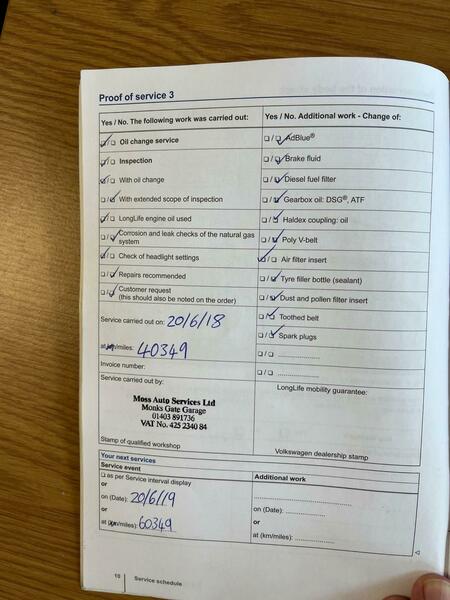 Proof of service 3
Yes / No. The following work was carried out:
☑/☐ Oil change service
☑/☐ Inspection
☑/☐ With oil change
☐/☑ With extended scope of inspection
☑/☐ LongLife engine oil used
☐/☑ Corrosion and leak checks of the natural gas
system
☑/☐ Check of headlight settings
☐/☑ Repairs recommended
☐/☑ Customer request
(this should also be noted on the order)
Service carried out on: 20/6/18
at km/miles: 40349
Invoice number:
Service carried out by:
Moss Auto Services Ltd
Monks Gate Garage
01403 891736
VAT No. 425 2340 84
Stamp of qualified workshop
Yes / No. Additional work - Change of:
☐/☑ AdBlue®
☐/☑ Brake fluid
☐/☑ Diesel fuel filter
☐/☑ Gearbox oil: DSG®, ATF
☐/☑ Haldex coupling: oil
☐/☑ Poly V-belt
☑/☐ Air filter insert
☐/☑ Tyre filler bottle (sealant)
☐/☑ Dust and pollen filter insert
☐/☑ Toothed belt
☐/☑ Spark plugs
☐/☐ ....................
☐/☐ ....................
LongLife mobility guarantee:
Volkswagen dealership stamp
Your next services
Service event
☐ as per Service interval display
or
on (Date): 20/6/19
or
at (km/miles): 60349
Additional work
....................
on (Date): ....................
or
at (km/miles): ....................
10 Service schedule